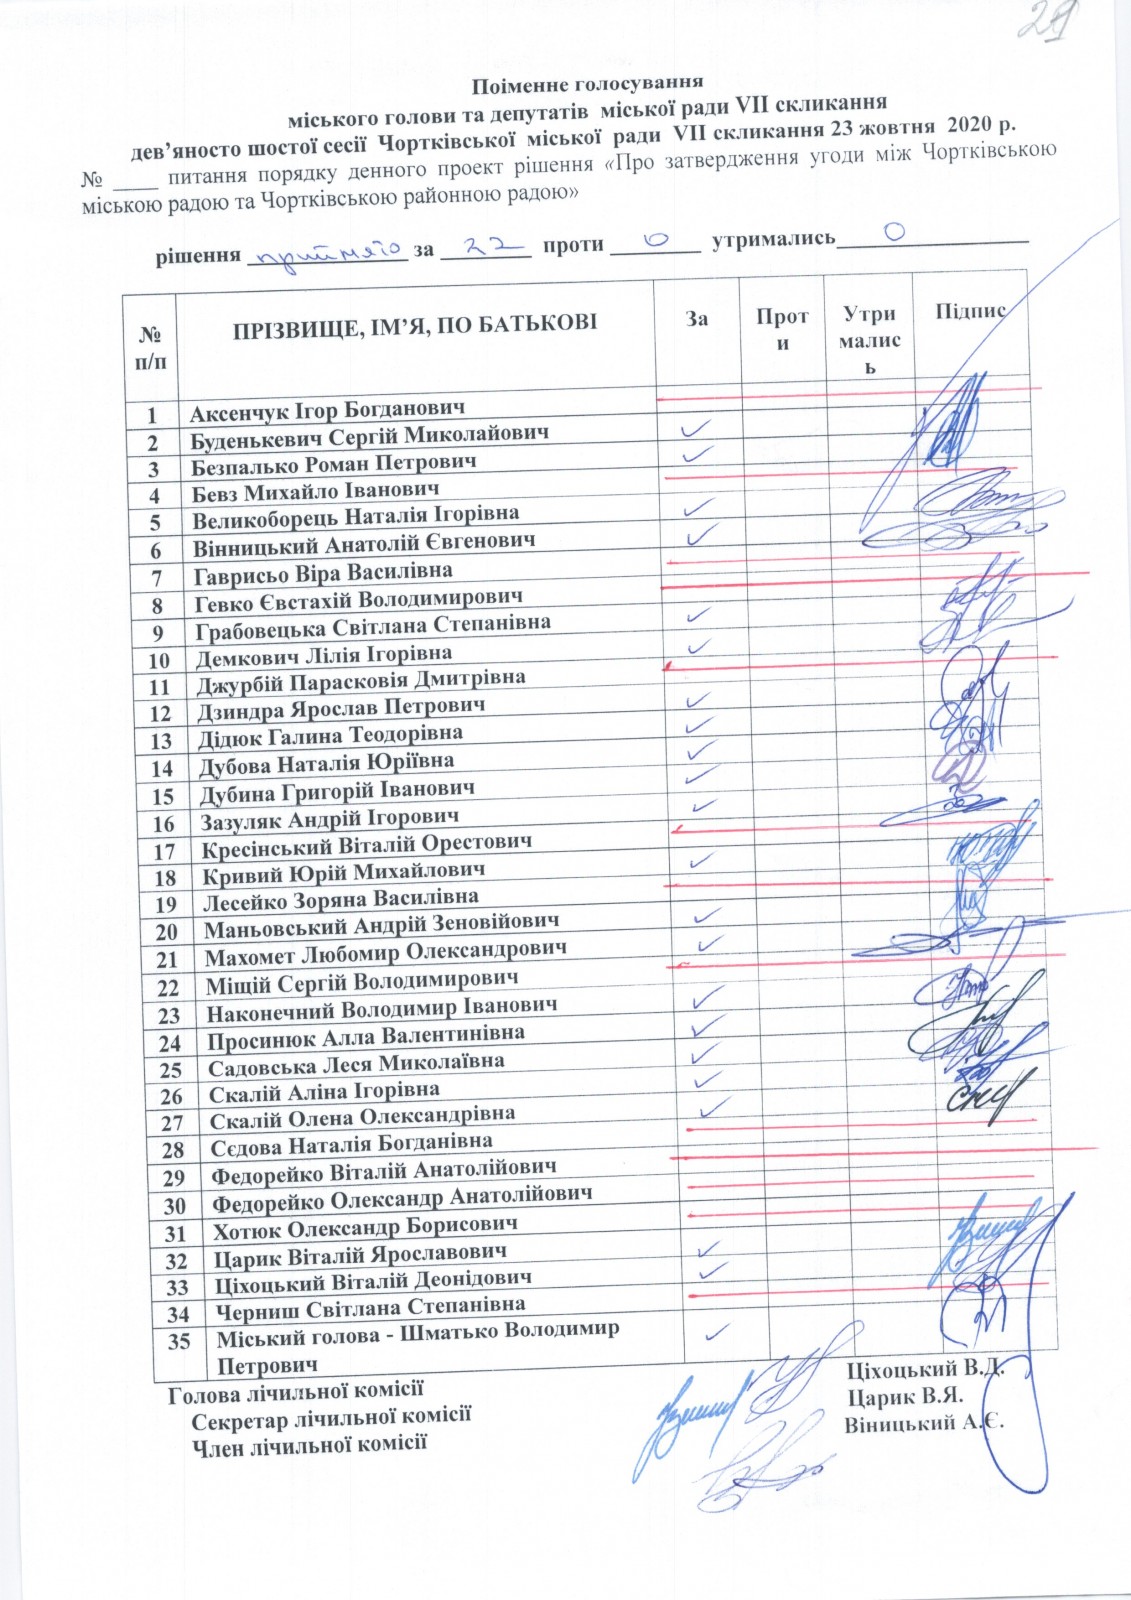 29
Поіменне голосування
міського голови та депутатів міської ради VII скликання
дев’яносто шостої сесії Чортківської міської ради VII скликання 23 жовтня 2020 р.
№ ____ питання порядку денного проект рішення «Про затвердження угоди між Чортківською
міською радою та Чортківською районною радою»
рішення прийнято за 22 проти 0 утримались 0
№ п/п ПРІЗВИЩЕ, ІМ’Я, ПО БАТЬКОВІ За Проти Утрималиcь Підпис
1 Аксенчук Ігор Богданович
2 Буденькевич Сергій Миколайович ✓
3 Безпалько Роман Петрович ✓
4 Бевз Михайло Іванович
5 Великоборець Наталія Ігорівна ✓
6 Вінницький Анатолій Євгенович ✓
7 Гаврисьо Віра Василівна
8 Гевко Євстахій Володимирович
9 Грабовецька Світлана Степанівна ✓
10 Демкович Лілія Ігорівна ✓
11 Джурбій Парасковія Дмитрівна
12 Дзиндра Ярослав Петрович ✓
13 Дідюк Галина Теодорівна ✓
14 Дубова Наталія Юріївна ✓
15 Дубина Григорій Іванович ✓
16 Зазуляк Андрій Ігорович ✓
17 Кресінський Віталій Орестович
18 Кривий Юрій Михайлович ✓
19 Лесейко Зоряна Василівна
20 Маньовський Андрій Зеновійович ✓
21 Махомет Любомир Олександрович ✓
22 Міщій Сергій Володимирович
23 Наконечний Володимир Іванович ✓
24 Просинюк Алла Валентинівна ✓
25 Садовська Леся Миколаївна ✓
26 Скалій Аліна Ігорівна ✓
27 Скалій Олена Олександрівна ✓
28 Сєдова Наталія Богданівна
29 Федорейко Віталій Анатолійович
30 Федорейко Олександр Анатолійович
31 Хотюк Олександр Борисович
32 Царик Віталій Ярославович ✓
33 Ціхоцький Віталій Деонідович ✓
34 Черниш Світлана Степанівна
35 Міський голова - Шматько Володимир ✓
Петрович
Голова лічильної комісії Ціхоцький В.Д.
Секретар лічильної комісії Царик В.Я.
Член лічильної комісії Віницький А.Є.